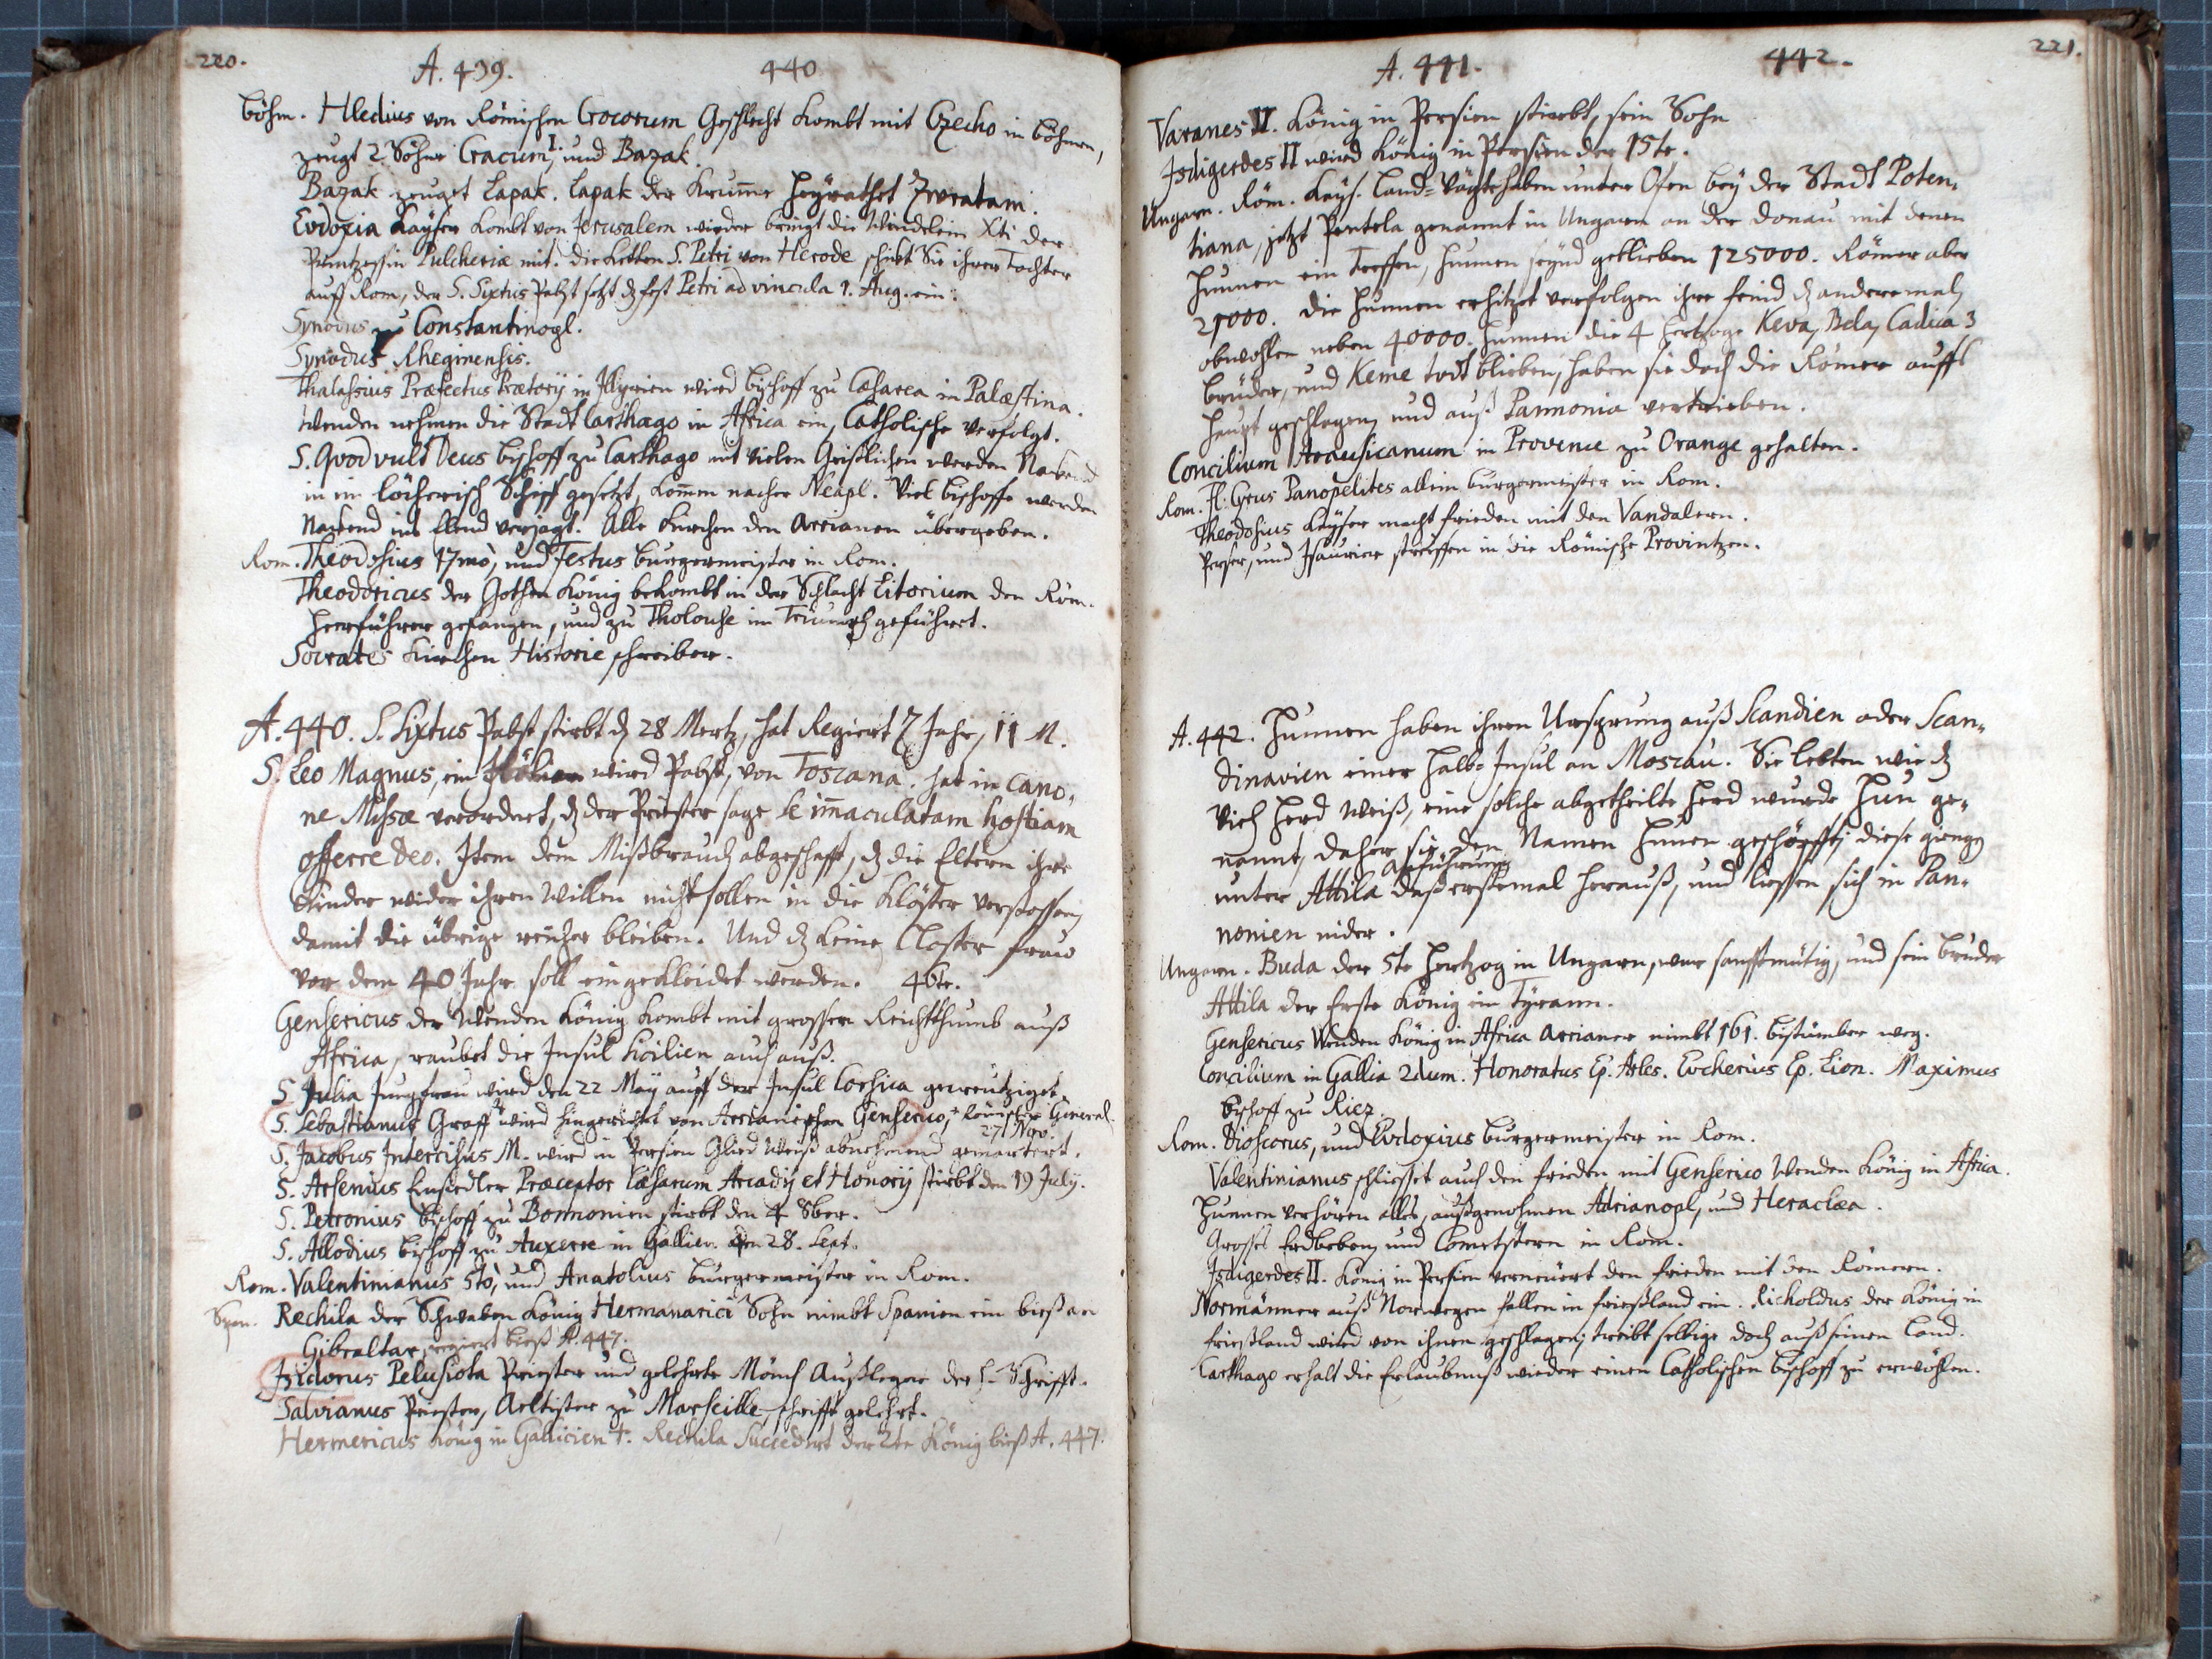 220.
A. 439. 440
Böhm. Hledius von Römischen Crocorum Geschlecht kombt mit Czecho in Böhmen,
zeugt 2 Söhne Cracum I, und Bazak.
Bazak zeugt Lapak. Lapak der Krum̄e heyrathet Zwratam.
Eudoxia Kayserin kombt von Jerusalem wieder bringt die Windelein Xti der
Printzessin Pulcheriæ mit. die Ketten S. Petri von Herode schickt Sie ihrer Tochter
auff Rom, der S. Sixtus Pabst setzt dz fest Petri ad vincula 1. Aug. ein.
Synodus zu Constantinopl.
Synodus Rhegiensis.
Thalassius Præfectus Prætorij in Illyrien wird Bischoff zu Cæsarea in Palæstina.
Wenden nehmen die Stadt Carthago in Africa ein, Catholische verfolgt.
S. Qvodvult Deus Bischoff zu Carthago mit vielen Geistlichen werden Nackend
in ein löcherich Schiff gesetzt, kom̄en nacher Neapl. Viel Bischoffe werden
Nackend ins Elend verjagt. Alle Kirchen den Arrianern übergeben.
Rom. Theodosius 17mò, und Festus Burgermeister in Rom.
Theodoricus der Gothen König bekombt in der Schlacht Litorium den Röm.
Heerführer gefangen, und zu Tholouse im Triumph geführet.
Socrates Kirchen Historie schreiber.
A. 440. S. Sixtus Pabst stirbt dz 28 Mertz, hat Regiert 7 Jahr, 11 M.
S. Leo Magnus, ein wird Pabst, von Toscana. hat in Cano-
ne Missæ verordnet, dz der Priester sage se im̄aculatam hostiam
offerre Deo. Item den Mißbrauch abgeschafft, dz die Eltern ihre
Kinder wider ihren Willen nicht sollen in die Klöster verstossen,
damit die übrige reicher bleiben. Und dz keine Closter fraw
vor dem 40 Jahr soll eingekleidet werden. 46te.
Gensericus der Wenden König kombt mit grossen Reichthumb auß
Africa, raubet die Insul Sicilien auch auß.
S. Julia Jungfrau wird den 22 May auff der Insul Corsica gecreutziget.
S. Sebastianus Graff wird hingerichtet von Arrianischen Genserico, Römischer General.
27 Nov.
S. Jacobus Intercisus M. wird in Persien Glied weiß abnehmend gemartert.
S. Arsenius Einsiedler Præceptor Cæsarum Arcadij et Honorij stirbt den 19 July.
S. Petronius Bischoff zu Bonnonien stirbt den 4 8ber.
S. Allodius Bischoff zu Auxerre in Gallien. den 28. Sept.
Rom. Valentinianus 5tò, und Anatolius Burgermeister in Rom.
Span. Rechila der Schwaben König Hermanarici Sohn nimbt Spanien ein bieß an
Gibraltar, regiert bieß A. 447.
Isidorus Pelusiota Priester und gelehrte Mönch Außleger der h. Schrifft.
Salvianus Priester, Aeltister zu Marseille, schrifft gelehrt.
Hermericus König in Gallicien †. Rechila Succedirt der 2te König bieß A. 447.
221.
A. 441. 442.
Varanes V. König in Persien stirbt, sein Sohn
Isdigerdes II wird König in Persien der 15te.
Ungarn. Röm. Kays. Land-Vögte haben unter Ofen bey der Stadt Poten-
tiana, jetzt Pentela genannt in Ungarn an der Donau mit denen
Hunnen ein Treffen, Hunnen seynd geblieben 125000. Römer aber
21000. die Hunnen erhitzet verfolgen ihre feind dz andere mahl
obwohlen neben 40000. Hunnen die 4 Hertzoge Keva, Bela, Cadica 3
Brüder, und Keme todt blieben, haben sie doch die Römer auffs
Haupt geschlagen, und auß Pannonia vertrieben.
Concilium Arausicanum in Provence zu Orange gehalten.
Rom. Fl. Cyrus Panopelites allein Burgermeister in Rom.
Theodosius Kayser macht frieden mit den Vandalern.
Perser, und Isaurier streiffen in die Römische Provintzen.
A. 442. Hunnen haben ihren Ursprung auß Scandien oder Scan-
dinavien einer Halb-Insul an Moscau. Sie lebten wie dz
Vieh Herd weiß, eine solche abgetheilte Herd wurde Hun ge-
nannt, daher sie den Namen Hunen geschöpfft, diese giengen
anführung
unter Attila daß erstemal herauß, und liessen sich in Pan-
nonien nider.
Ungarn. Buda der 5te Hertzog in Ungarn, war sanfftmütig, und sein bruder
Attila der Erste König ein Tyrann.
Gensericus Wenden König in Africa Arrianer nimbt 161. bistümber weg.
Concilium in Gallia 2dum. Honoratus Ep. Arles. Eucherius Ep. Lion. Maximus
Bischoff zu Riez.
Rom. Dioscorus, und Eudoxius Burgermeister in Rom.
Valentinianus schliesset auch den frieden mit Genserico Wenden König in Africa.
Hunnen verhören alles, außgenohmen Adrianopl, und Heraclæa.
Grosses Erdbeben, und Cometstern in Rom.
Isdigerdes II. König in Persien verneuert den frieden mit den Römern.
Normänner auß Norwegen fallen in frießland ein. Richoldus der König in
frießland wird von ihnen geschlagen, treibt selbige doch auß seinen Land.
Carthago erhalt die Erlaubnuß wieder einen Catholischen Bischoff zu erwöhlen.